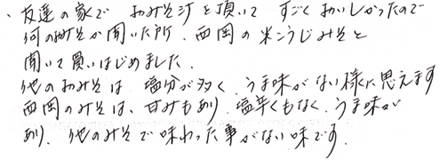 ・友達の家で おみそ汁を頂いて すごくおいしかったので
何のみそか聞いた所、西岡の米こうじみそと
聞いて買いはじめました。
他のおみそは、塩分が多く、うま味がない様に思えます
西岡のみそは、甘みもあり、塩辛くもなく、うま味が
あり、他のみそで味わった事がない味です。